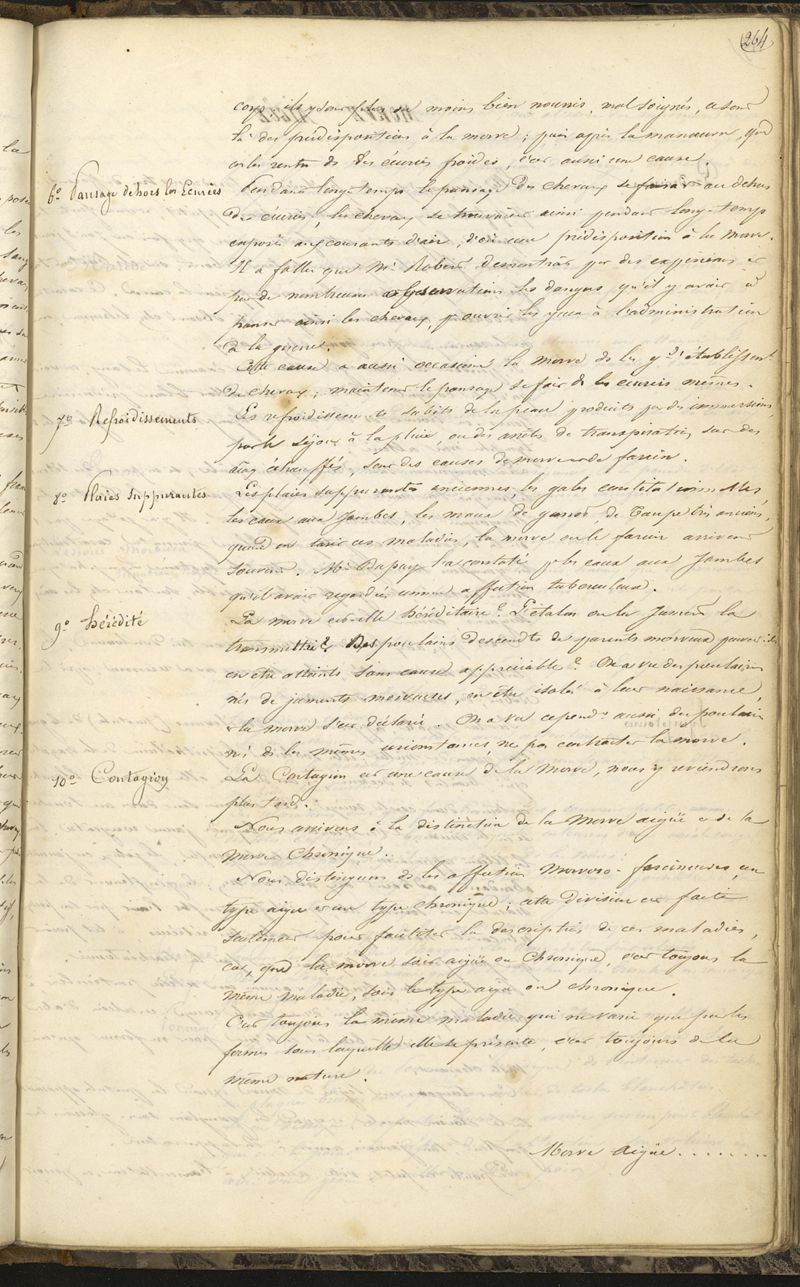 264
corps, ils y sont plus ou moins bien nourris, mal soignés, ce sont
là des prédispositions à la morve; puis après la manœuvre, qd
on les rentre ds des écuries froides, c'est aussi une cause.
6° Pansage dehors les Ecuries
Pendant longtemps le pansage des chevaux se faisait au dehors
des écuries, les chevaux se trouvaient ainsi pendant long-temps
exposés aux courants d'air, d'où une prédisposition à la morve.
Il a fallu que Mr Robert démontrât par des expériences et
par de nombreuses observations les dangers qu'il y avait à
panser ainsi les chevaux, pr ouvrir les yeux à l'administration
de la guerre.
Cette cause a aussi occasionné la morve ds les gds établissemts
de chevaux; maintenant le pansage se fait ds les écuries mêmes.
7° Refroidissements
Les refroidissements subits de la peau produits par des immersions,
par le séjour à la pluie, ou des arrêts de transpiration sur des
chevaux échauffés, sont des causes de morve et de farcin.
8° Plaies suppurantes
Les plaies suppurantes anciennes, les gales constitutionnelles,
les eaux aux jambes, les maux de garrot, de taupe très anciens,
quand on tarit ces maladies, la morve ou le farcin arrivent
souvent. Mr Dupuy l'a constaté pr les eaux aux jambes
qu'il avait regardées comme affection tuberculeuse.
9° hérédité
La morve est-elle héréditaire? L'étalon ou la jument la
transmettent? Des poulains descendts de parents morveux peuvent-ils
en être atteints sans cause appréciable? On a vu des poulains
nés de juments morveuses, en être isolés à leur naissance
& la morve s'est déclarée. On a vu cependt aussi des poulains
nés ds les mêmes circonstances ne pas contracter la morve.
10° Contagion
La Contagion est une cause de la morve, nous y reviendrons
plus tard.
Nous arrivons à la distinction de la Morve aigüe et de la
Morve Chronique.
Nous distinguons ds les affections Morvoso-farcineuses, un
type aigu et un type chronique; cette division est faite
seulement pour faciliter la description de ces maladies,
car, qd la morve soit aigüe ou Chronique, c'est toujours la
même maladie, sous le type aigu ou chronique.
C'est toujours la même maladie qui ne varie que par les
formes sous laquelle elle se présente, c'est toujours de la
même nature.
Morve Aigüe........